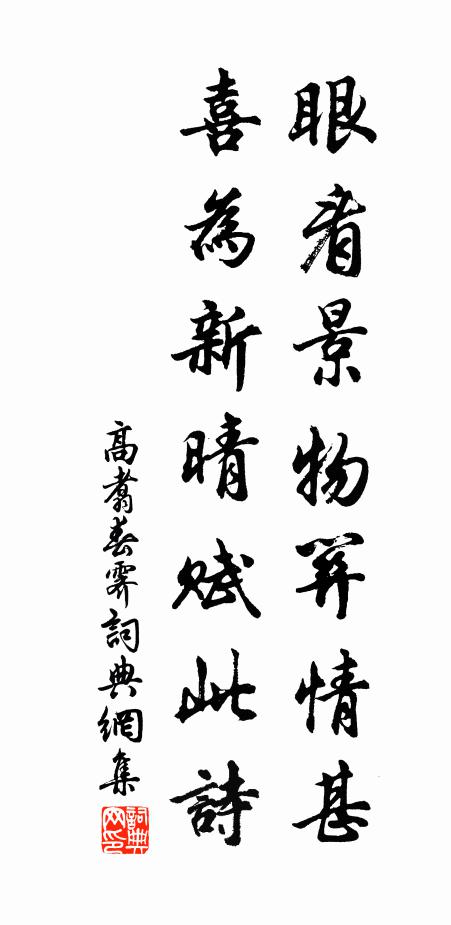 眼看景物關情甚
喜為新晴賦此詩
高翥春霽詞典網集
詞典网印